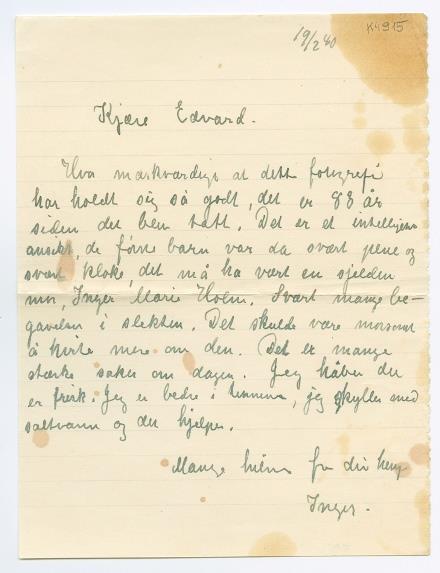 19/2 40
K4915
Kjære Edvard.
Hvor mærkværdigt at dette fotografi
har holdt sig så godt, det er 83 år
siden det blev tatt. Det er et intelligent
ansikt, de første barn var da svært pene og
svært kloke, det må ha vært en sjelden
mor, Inger Marie Holm. Svært mange be-
gavelser i slekten. Det skulde være morsomt
å høre mere om den. Det er mange
stærke saker om dagen. Jeg håber du
er frisk. Jeg er bedre i, jeg skyller med
saltvann og det hjelper.
Mange hilsner fra din heng.
Inger.